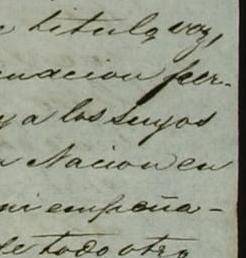 titulo, voz,
nacion per-
y a los suyos
Nacion en
ni empeña-
de todo otro